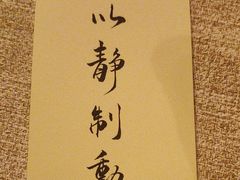 以静制動